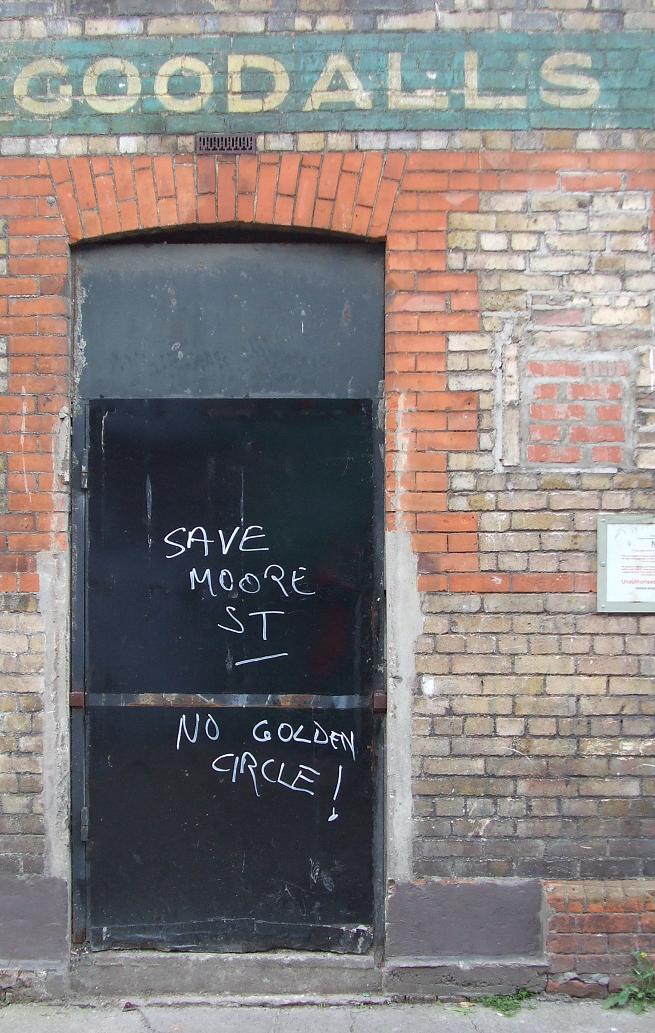 GOODALLS
SAVE
MOORE
ST
NO GOLDEN
CIRCLE!